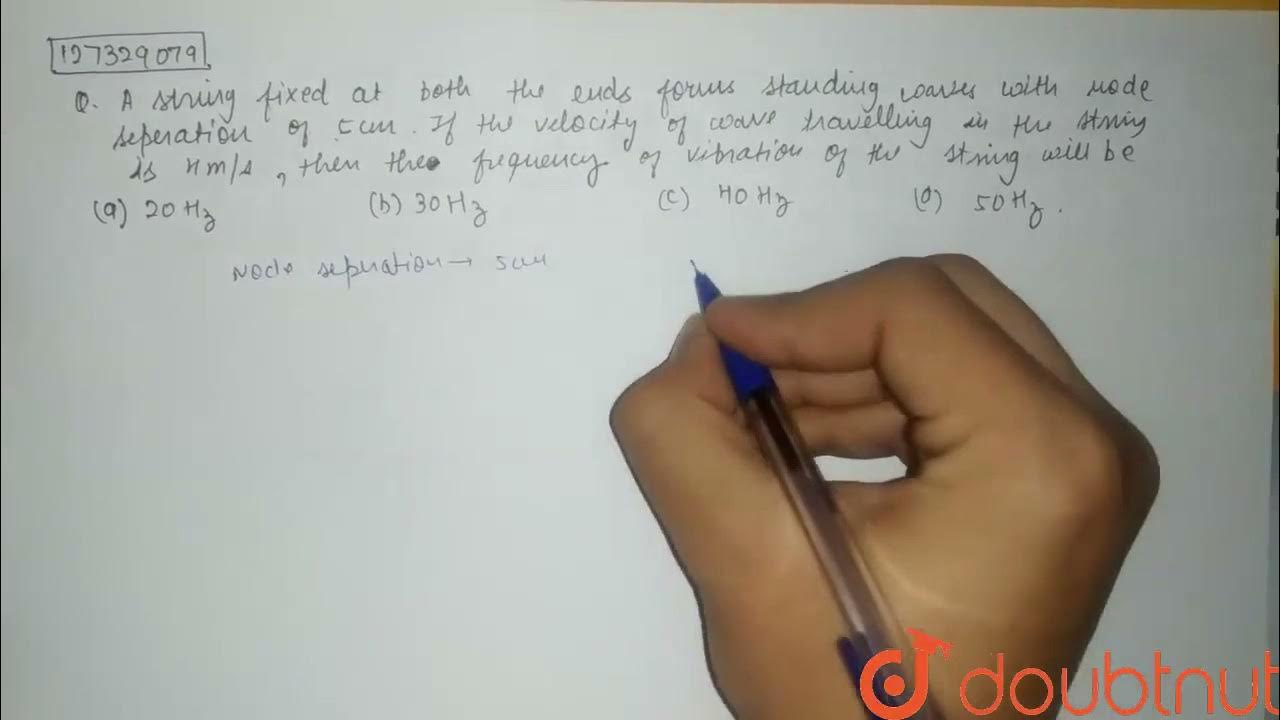 127329079
Q. A string fixed at both the ends forms standing waves with node
seperation of 5cm. If the velocity of wave travelling in the string
is 4m/s, then the frequency of vibration of the string will be
(a) 20Hz (b) 30Hz (c) 40Hz (d) 50Hz.
Node seperation → 5cm
doubtnut